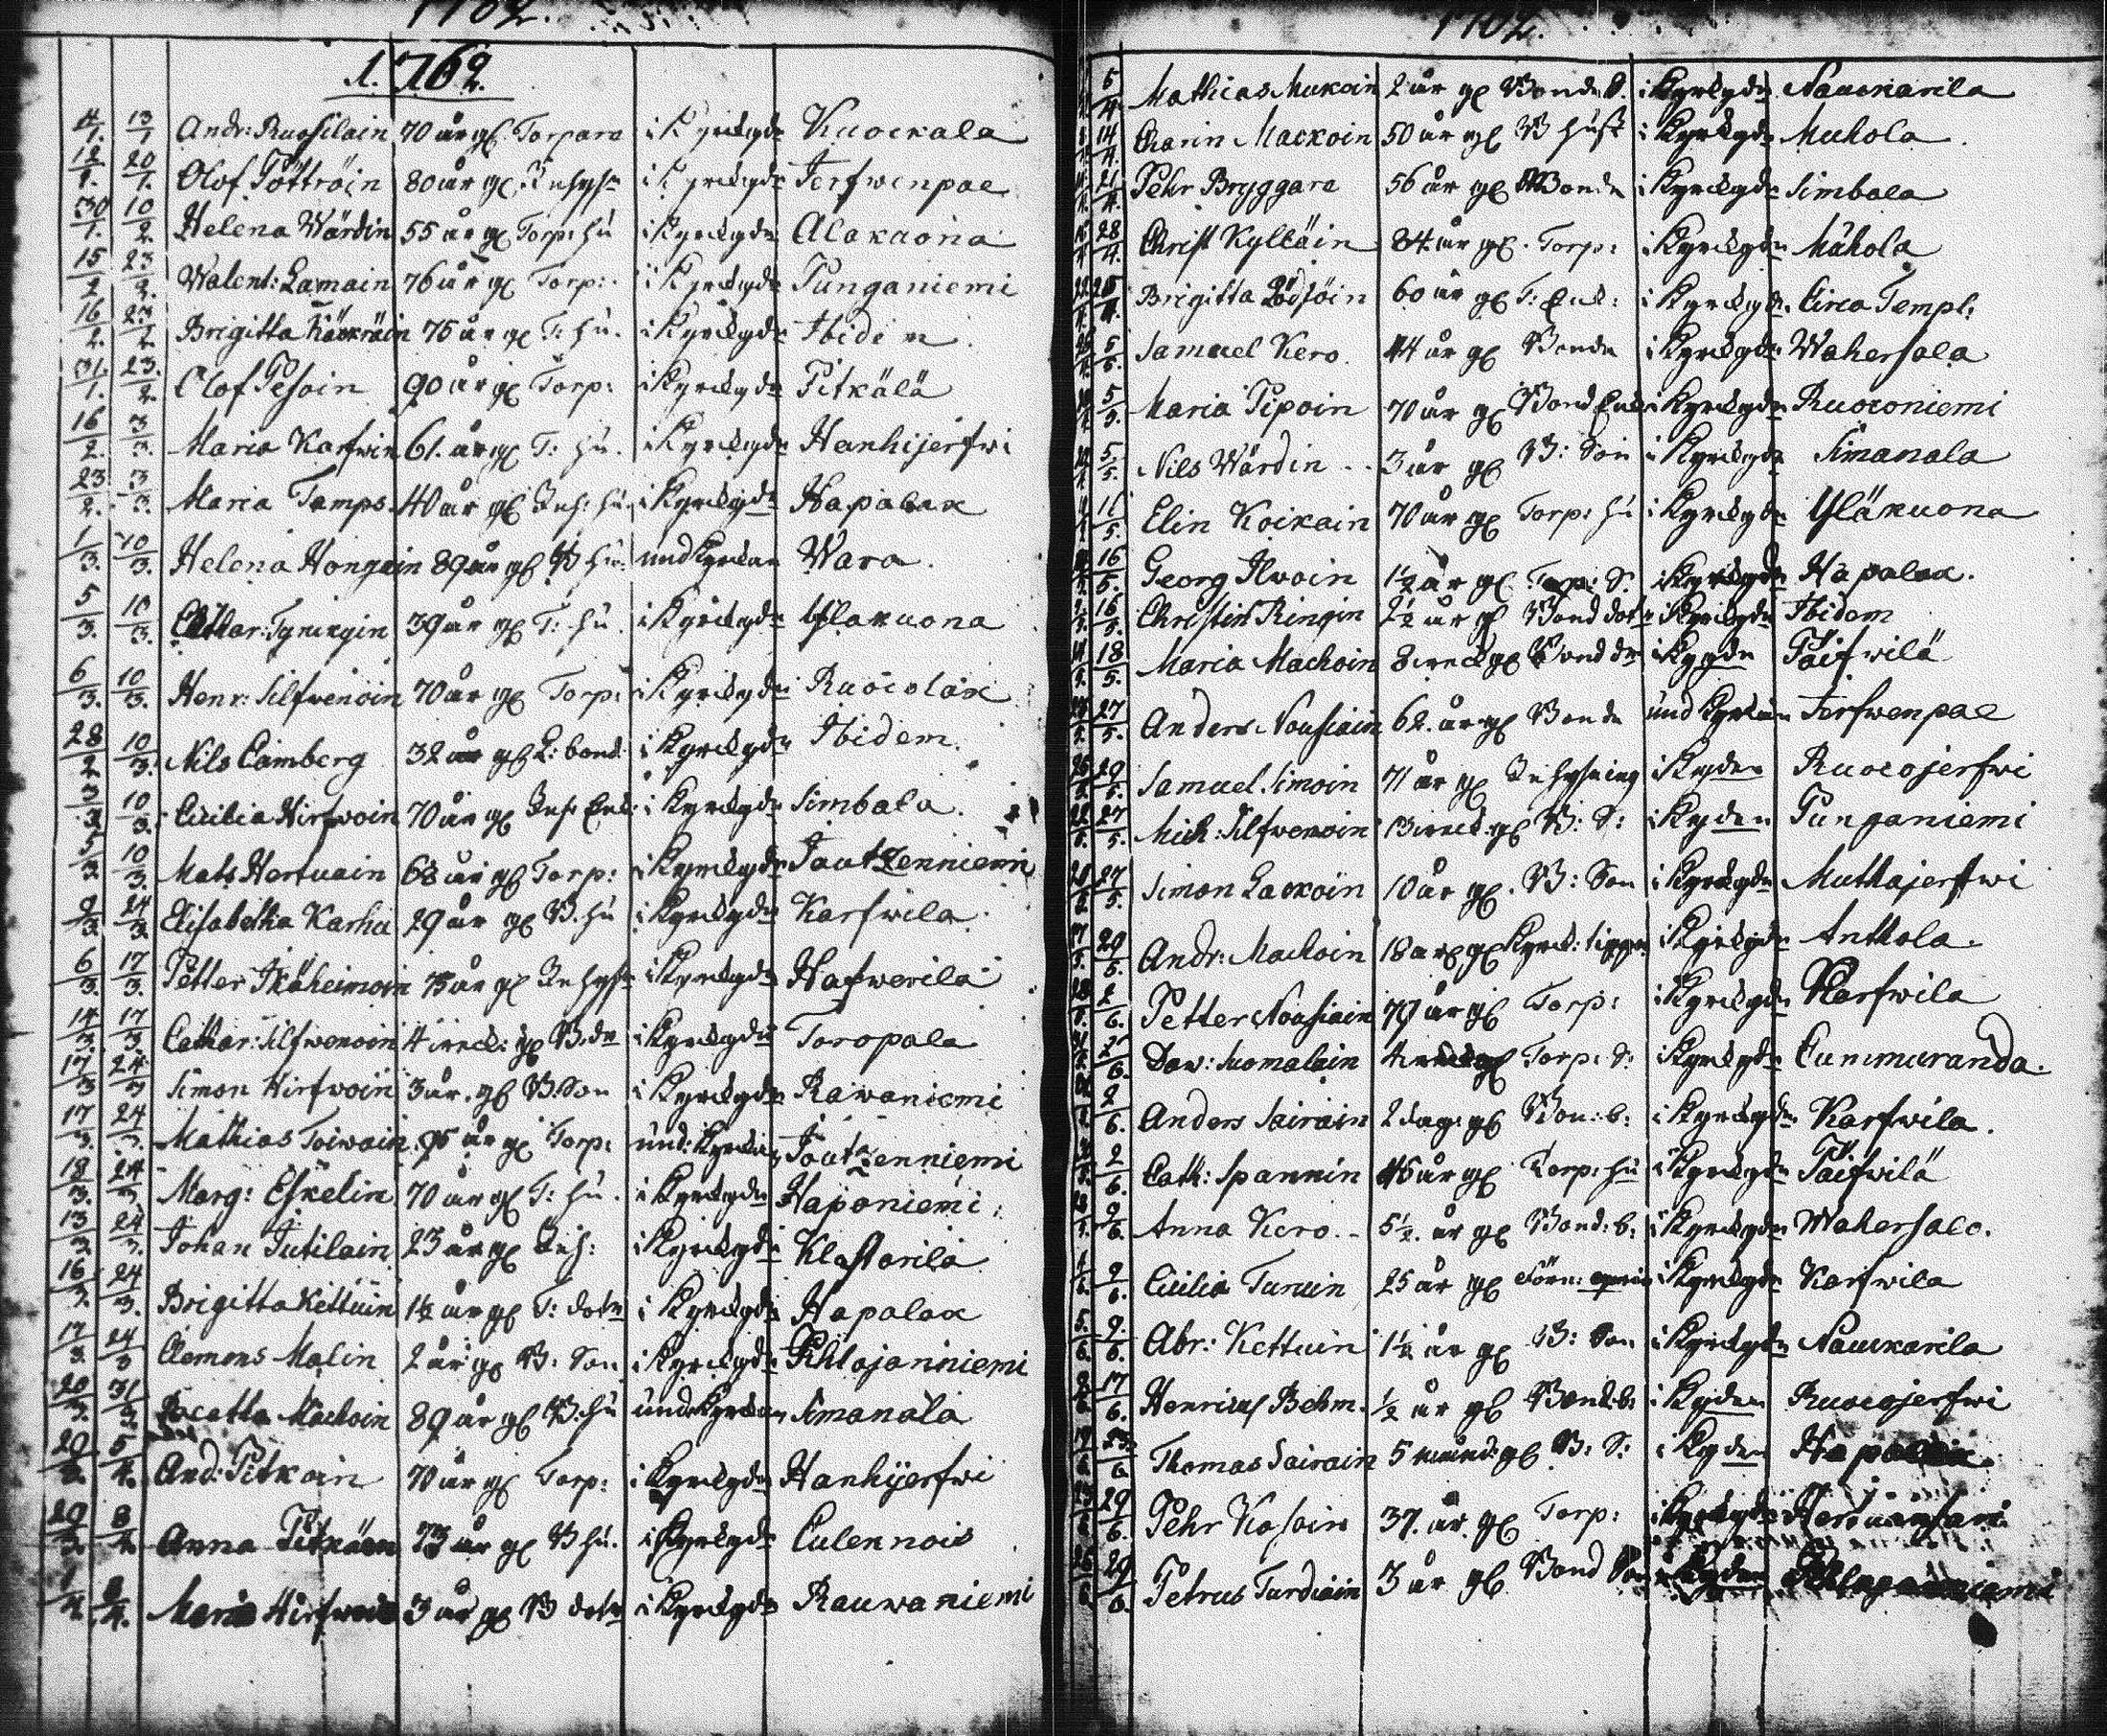 1762.
1762.
4/1. 13/1 Andr: Ruosilain 70 år gl. Torpare i Kyrckgdn Kuockala
12/1. 20/1. Olof Pöttröin 80 år gl. Inhyss i Kyrckgdn Jerfwenpae
30/1. 10/2. Helena Wärdin 55 år gl Torp: hu i Kyrckgdn Alakuona
15/2 23/2. Walent: Lamain 76 år gl Torp: i Kyrckgdn Punganiemi
16/2. 23/2. Brigitta 75 år gl T: hu. i Kyrckgdn Ibidem
31/1. 23./2 Olof Pesoin 90 år gl Torp: i Kyrckgdn Pitkälä
16/2. 3/3. Maria Karfwin 61. år gl T: hu. i Kyrckgdn Hanhijerfwi
23/2. 3/3. Maria Tamps. 40 år gl Inh: hu. i Kyrckgdn Hapalax
1/3. 10/3. Helena Hongain 89 år gl B hu: und Kyrckan Wara.
5/3. 10/3. Cathar: Tynckyin 39 år gl T: hu i Kyrckgdn Ylakuona
6/3. 10/3. Henr: Silfwenoin 70 år gl Torp: i Kyrckgdn Ruocolax
28/2 10/3. Nils Camberg 32 år gl L: bond. i Kyrckgdn Ibidem.
3/3 10/3. Cicilia Hirfwoin 70 år gl Inh: Enk: i Kyrckgdn Simbala.
5/3 10/3. Mats Hertuain 68 år gl Torp: i Kyrckgdn Joutzenniemi
9/3. 24/3 Elisabetha Karhu 29 år gl B. hu i Kyrckgdn Karfwila.
6/3. 17/3. Petter Ikäheimoin 75 år gl Inhyss i Kyrckgdn Hafwerila
14/3. 17/3 Cathar: Silfwenoin 4 weck: gl B. dr i Kyrckgdn Toropala
17/3 24/3 Simon Hirfwoin 3 år. gl B. Son i Kyrckgdn Rawaniemi
17/3. 24/3. Mathias Toiwain. 95 år gl Torp: und: Kyrckan Joutzenniemi
18/3. 24/3. Marg: Eskelin 70 år gl T: hu. i Kyrckgdn Haponiemi.
13/3 24/3. Johan Jutilain 23 år gl Inh: i Kyrckgdn Klastarila
16/3. 24/3. Brigitta Kettuin 1½ år gl T: dotr i Kyrckgdn Hapalax
17/3. 24/3 Clemens Malin 2 år gl B: Son i Kyrckgdn Pihlajanniemi
20/3. 31/3. Beatta Mackoin 89 år gl B: hu und: Kyrckan Simanala
5/4. And: Pitkäin 70 år gl Torp: i Kyrckgdn Hanhijerfwi
29/3. 8/4. Anna Pitkäin 73 år gl B hu. i Kyrckgdn Culennois
1/4. 8/4. Maria 3 år gl B dotr i Kyrckgdn Rauwaniemi
5/4 Mathias Mukoin 2 år gl Bonde S. i Kyrckgdn Nauckarila
14/4. Carin Mackoin 50 år gl B hust i Kyrckgdn Muhola.
21/4. Pehr Bryggare 56 år gl Bonde i Kyrckgdn Simbala
28/4. Christ Kylläin 84 år gl. Torp: i Kyrckgdn Mähola
Brigitta 60 år gl T: Enk: i Kyrckgdn. Circa Templ:
5/5. Samuel Kero. 44 år gl Bonde i Kyrckgdn Wahersala
5/5. Maria Pipoin 70 år gl Bond Enk i Kyrckgdn Ruoconiemi
5/5. Nils Wärdin 3 år gl B: Son i Kyrckgdn Simanala
11/5. Elin Koikain 70 år gl Torp: hu i Kyrckgdn Yläkuona
16/5. Georg Ilwoin 1½ år gl Torp: S. i Kyrckgdn Hapalax.
16/5. Christin Ringin 2½ år gl Bond dotr i Kyrckgdn Ibidem
18/5. Maria Mackoin 8 weck gl Bond dr i Kygdn Päifwilä
27/5. Anders Nousiain 62. år gl Bonde und Kyrckan Jerfwenpae
20/5. Samuel Simoin 71 år gl Inhysning i Kygden Ruocojerfwi
27/5. Mich: Silfwenoin 13 weck gl B: S: i Kygden Punganiemi
27/5. Simon Lackoin 10 år gl. B: Son i Kyrckgdn Muttajerfwi
29/5. Andr: Mackoin 18 år gl Kyrck: i Kyrckgdn Anttola.
2/6. Petter Nousiain 79 år gl Torp: i Kyrckgdn Karfwila
2/6. Daw: Suomalain 4 weck gl Torp: S: i Kyrckgdn Cummuranda.
2/6. Anders Sairain 2 dag: gl Bon: b: i Kyrckgdn. Karfwila.
2/6. Cath: Spannin 45 år gl Torp: hu i Kyrckgdn Päifwilä
9/6. Anna Kero. 5½. år gl Bond: b: i Kyrckgdn Wahersalo.
9/6. Cicilia Turuin 25 år gl i Kyrckgdn Karfwila
5./6. 9/6. Abr: Kettuin 1½ år gl B: Son i Kyrckgdn Nauckarila
17/6. Henricus Behm. ½ år gl Bond: b. i Kygden Ruocojerfwi
Thomas Sairain 5 månd: gl B: S: i Kygden Hapalax.
29/6. Pehr Kosoin 37. år gl Torp: i Kyrckgdn
29/6. Petrus Turdiain 3 år gl Bond Son i Kygden Pihlajanniemi